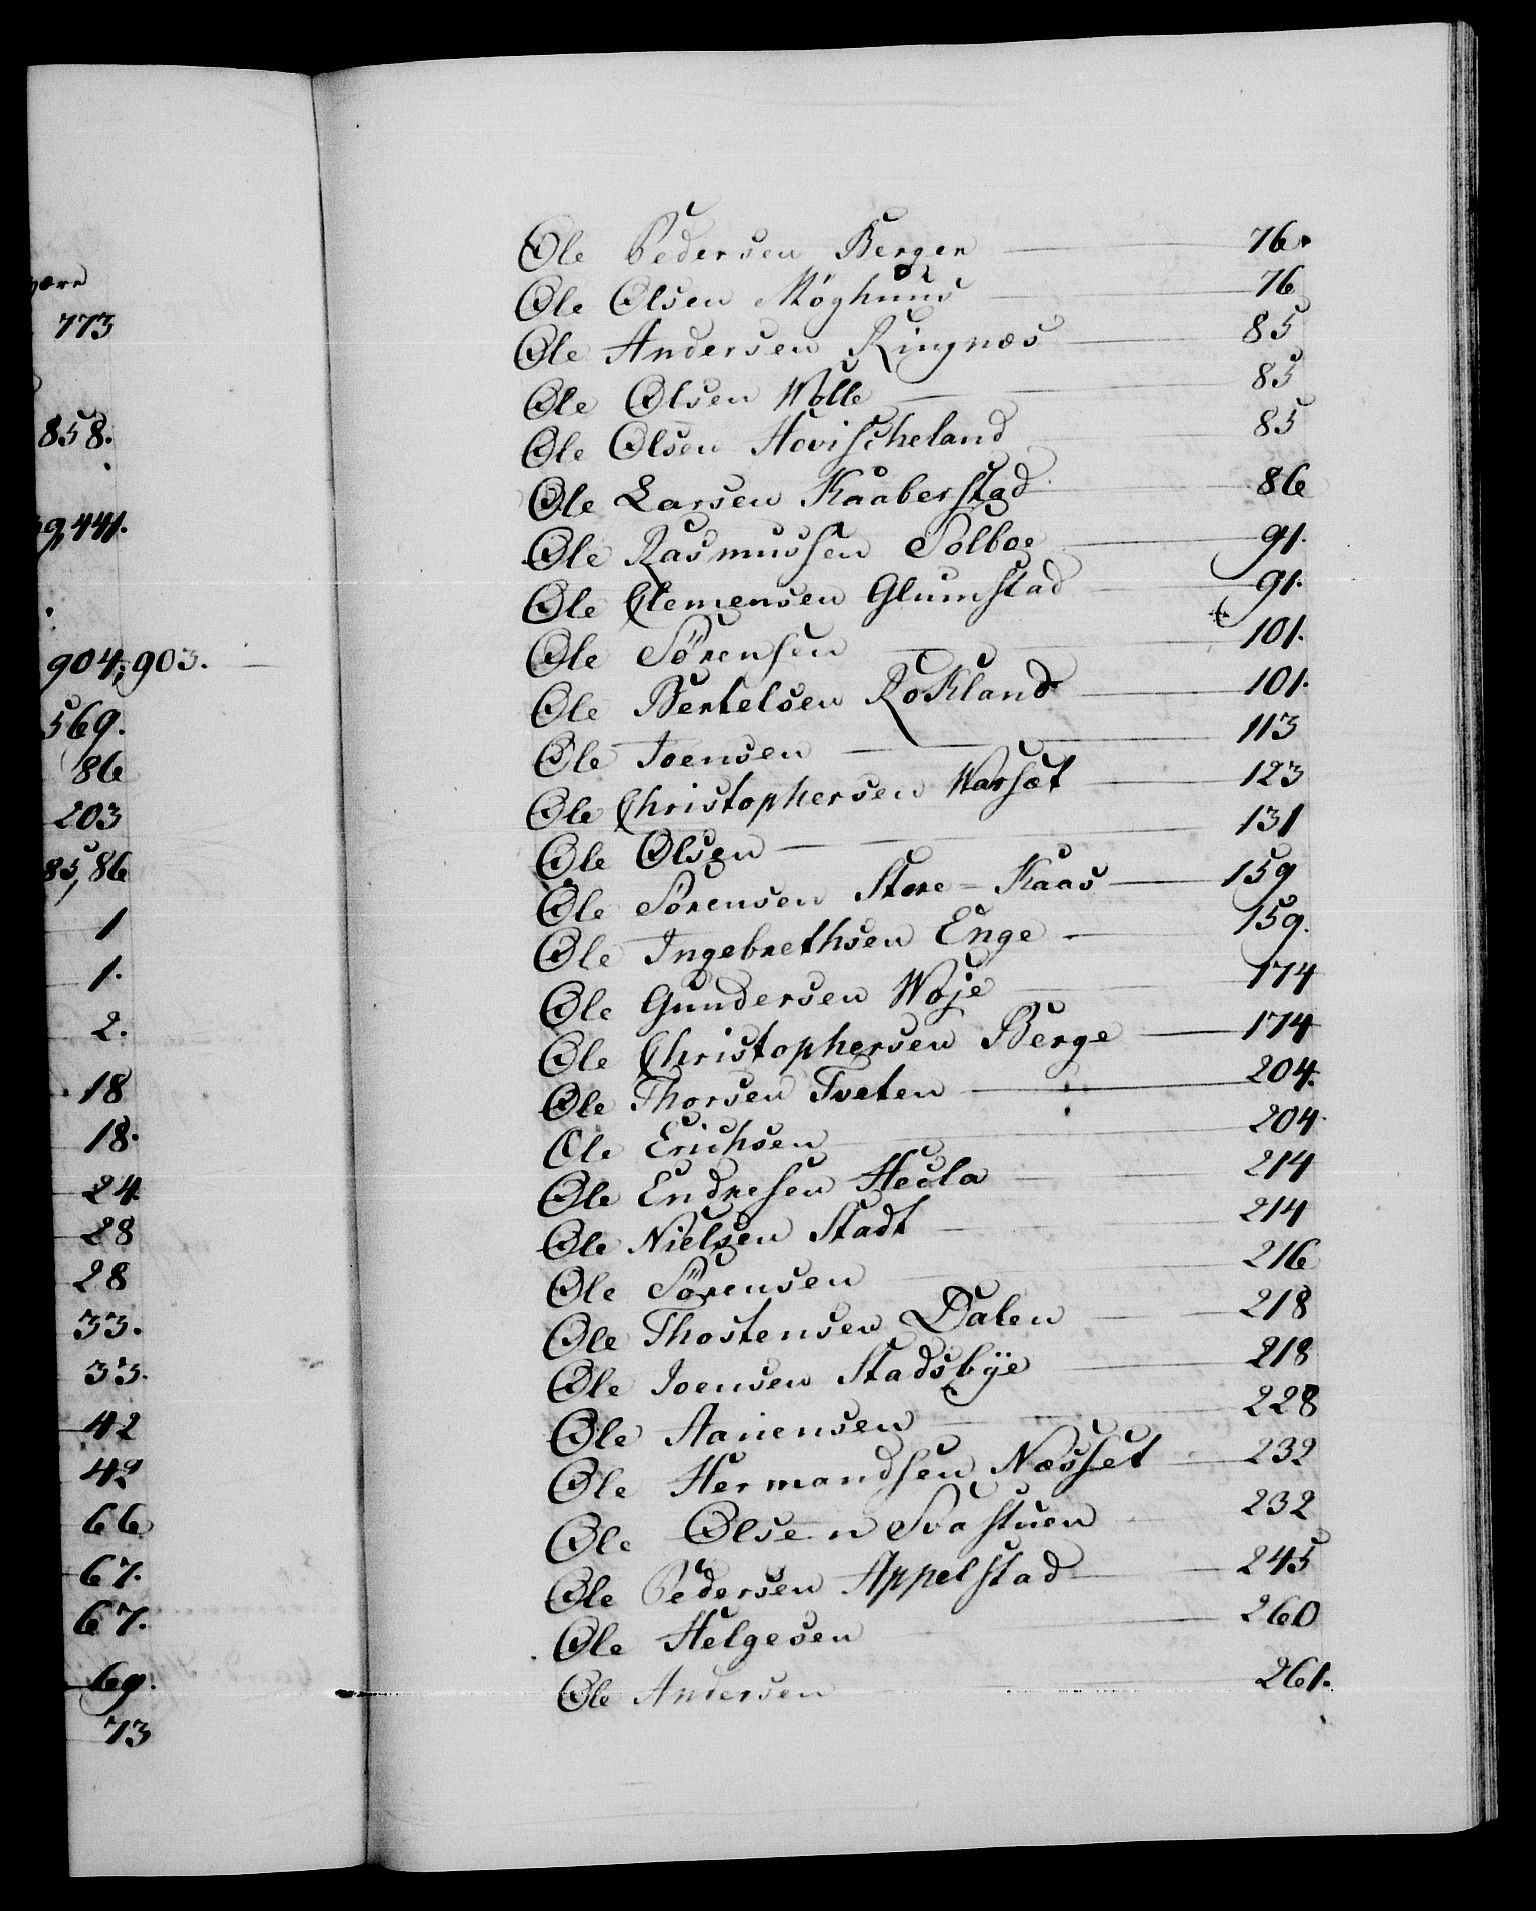 være
773
858.
9,441.
904, 903.
569.
86
203
85, 86
1
1.
2.
18
18.
24.
28
28
33.
33.
42
42
66
67.
67.
69.
73
Ole Pedersen Bergen — 76.
Ole Olsen Møghuus — 76
Ole Andersen Ringnæs — 85
Ole Olsen Wolle — 85
Ole Olsen Hovischeland — 85
Ole Larsen Kaaberstad — 86
Ole Rasmussen Solboe — 91.
Ole Clemensen Glumstad — 91.
Ole Sörensen — 101.
Ole Bertelsen Rokland — 101.
Ole Joensen — 113
Ole Christophersen Warsæt — 123
Ole Olsen — 131
Ole Sörensen Store-Kaas — 159
Ole Ingebrethsen Enge — 159.
Ole Gundersen Woje — 174
Ole Christophersen Berge — 174
Ole Thorsen Tveten — 204.
Ole Erichsen — 204.
Ole Endresen Hecla — 214
Ole Nielsen Stadt — 214
Ole Sörensen — 216
Ole Thostensen Dalen — 218
Ole Joensen Stadsbÿe — 218
Ole Aanensen — 228
Ole Hermandsen Næsset — 232
Ole Olsen Svastuen — 232
Ole Pedersen Appelstad — 245
Ole Helgesen — 260
Ole Andersen — 261.